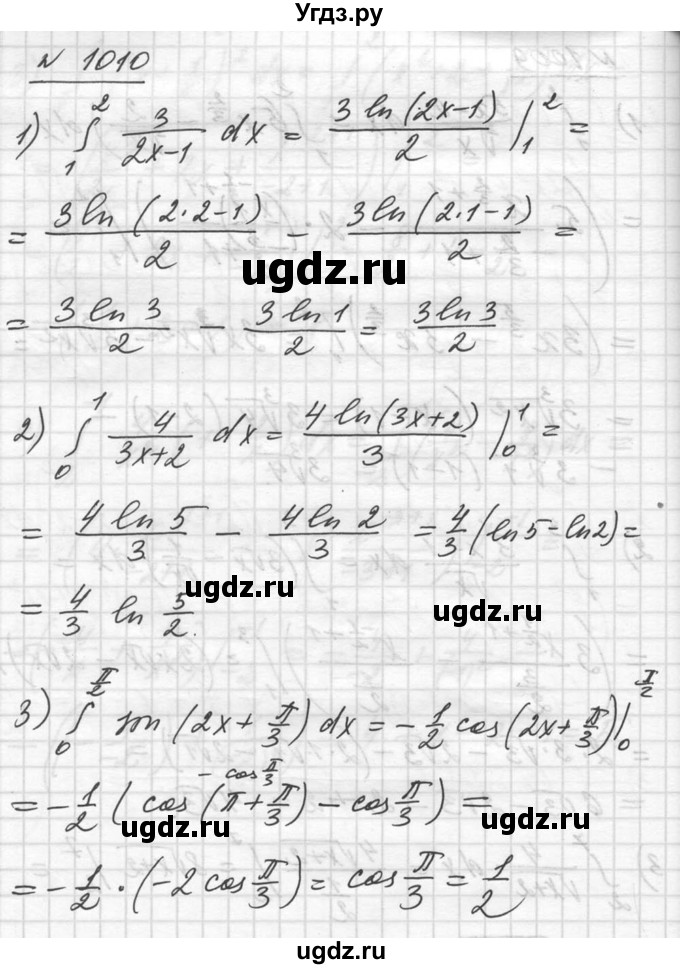 Угдз.ру
№ 1010
1) ∫₁² 3/(2x-1) dx = 3 ln (2x-1)/2 |₁² =
= 3 ln (2·2-1)/2 - 3 ln (2·1-1)/2 =
ugdz.ru
= 3 ln 3/2 - 3 ln 1/2 = 3 ln 3/2
2) ∫₀¹ 4/(3x+2) dx = 4 ln (3x+2)/3 |₀¹ =
= 4 ln 5/3 - 4 ln 2/3 = 4/3 (ln 5 - ln 2) =
ugdz.ru ugdz.ru
= 4/3 ln 5/2.
3) ∫₀^(π/2) sin (2x + π/3) dx = -1/2 cos (2x + π/3) |₀^(π/2)
- cos π/3
= -1/2 (cos (π + π/3) - cos π/3) =
ugdz.ru ugdz.ru
= -1/2 · (-2 cos π/3) = cos π/3 = 1/2
ugdz.ru